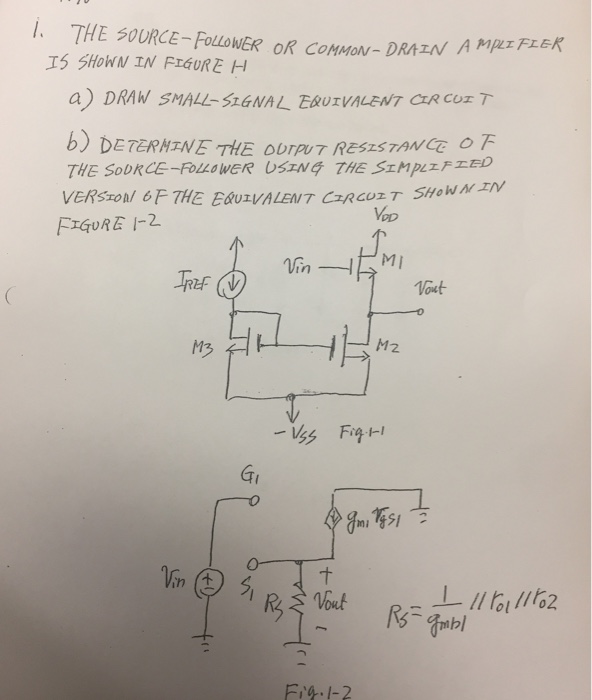 1. THE SOURCE-FOLLOWER OR COMMON-DRAIN AMPLIFIER
IS SHOWN IN FIGURE 1-1
a) DRAW SMALL-SIGNAL EQUIVALENT CIRCUIT
b) DETERMINE THE OUTPUT RESISTANCE OF
THE SOURCE-FOLLOWER USING THE SIMPLIFIED
VERSION OF THE EQUIVALENT CIRCUIT SHOWN IN
FIGURE 1-2
VDD
Vin
M1
IREF
Vout
M3
M2
-VSS Fig 1-1
G1
gm1 Vgs1
Vin
+
-
S1
RS
+
Vout
-
RS = 1/gmb1 // ro1 // ro2
Fig. 1-2